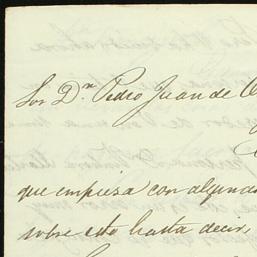 Sor Dn Pedro Juan de
que empieza con alguna
sobre esto hasta decir,